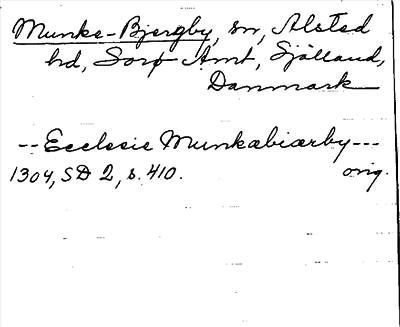 Munke-Bjergby, sn, Alsted
hd, Sorø Amt, Sjælland,
Danmark
--Ecclesie Munkabiærby---
1304, SD 2, s. 410. orig.